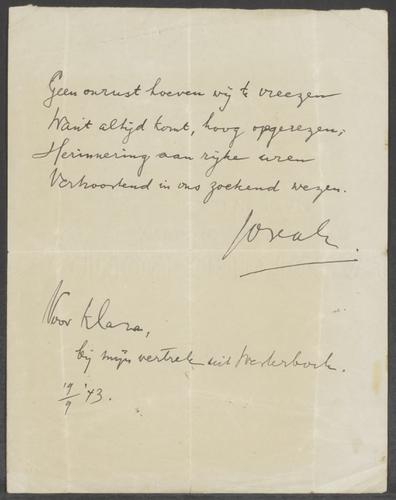 Geen onrust hoeven wij te vreezen
Want altijd komt, hoog opgerezen,
Herinnering aan rijke uren
in ons zoekend wezen.
Voor Klara,
bij mijn vertrek uit Westerbork.
19/9 '43.